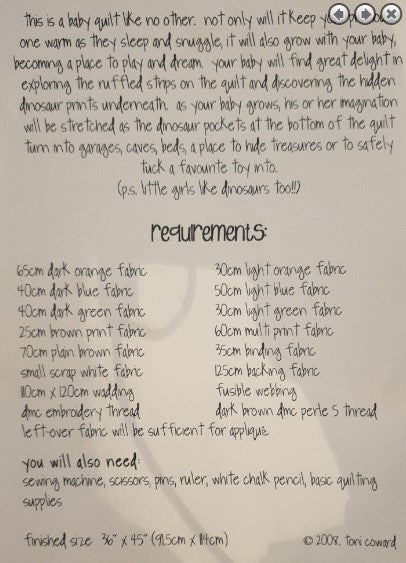 this is a baby quilt like no other. not only will it keep your
one warm as they sleep and snuggle, it will also grow with your baby,
becoming a place to play and dream. your baby will find great delight in
exploring the ruffled strips on the quilt and discovering the hidden
dinosaur prints underneath. as your baby grows, his or her imagination
will be stretched as the dinosaur pockets at the bottom of the quilt
turn into garages, caves, beds, a place to hide treasures or to safely
tuck a favourite toy into.
(p.s. little girls like dinosaurs too!!)
requirements:
65cm dark orange fabric 30cm light orange fabric
40cm dark blue fabric 50cm light blue fabric
40cm dark green fabric 30cm light green fabric
25cm brown print fabric 60cm multi print fabric
70cm plain brown fabric 35cm binding fabric
small scrap white fabric 125cm backing fabric
110cm x 120cm wadding fusible webbing
dmc embroidery thread dark brown dmc perle 5 thread
left-over fabric will be sufficient for appliqué
you will also need:
sewing machine, scissors, pins, ruler, white chalk pencil, basic quilting
supplies
finished size 36" x 45" (91.5cm x 114cm) © 2008. toni coward